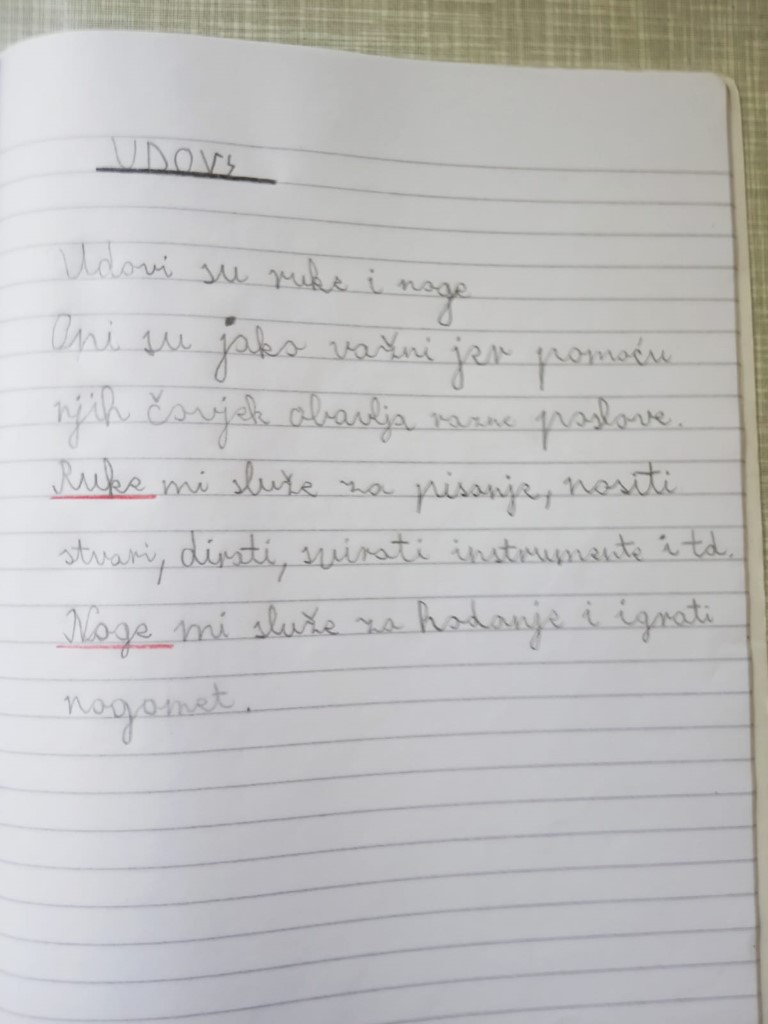 UDOVI
Udovi su ruke i noge
Oni su jako važni jer pomoću
njih čovjek obavlja razne poslove.
Ruke mi služe za pisanje, nositi
stvari, dirati, svirati instrumente i td.
Noge mi služe za hodanje i igrati
nogomet.